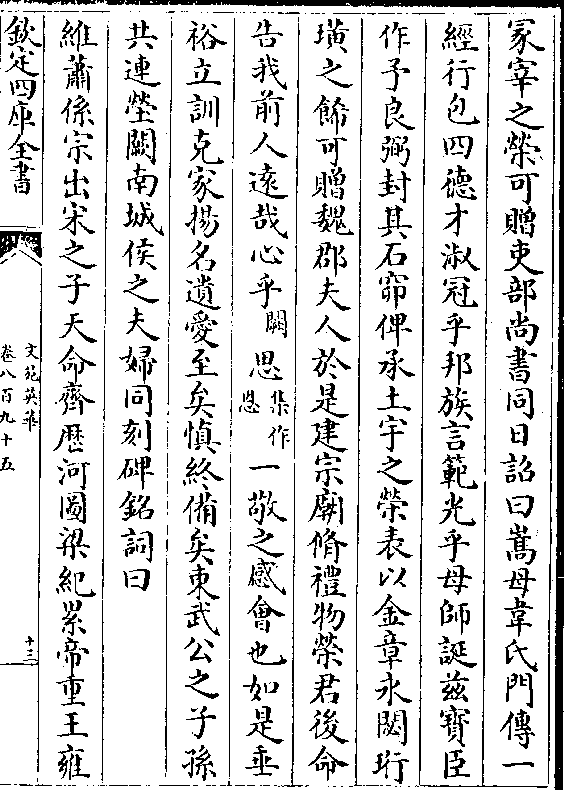 冢宰之榮可贈吏部尚書同日詔曰嵩母韋氏門傳一
經行包四德才淑冠乎邦族言範光乎母師誕兹寶臣
作予良弼封其石窌俾承土宇之榮表以金章永閟珩
璜之飾可贈魏郡夫人於是建宗廟脩禮物榮君後命
告我前人遠哉心乎闕思集作恩一敬之感會也如是垂
裕立訓克家揚名遺愛至矣慎終備矣東武公之子孫
共連塋闕南城侯之夫婦同刻碑銘詞曰
維蕭係宗出宋之子天命齊歴河圖梁紀累帝重王雍
欽定四庫全書
文苑英華
卷八百九十五
十三